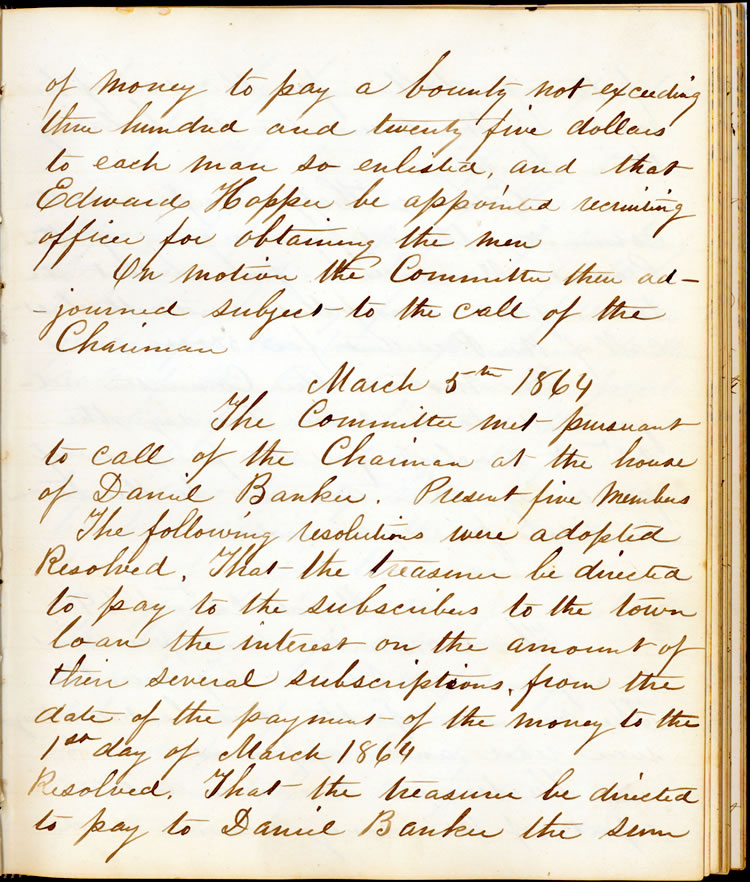 of money to pay a bounty not exceeding
three hundred and twenty five dollars
to each man so enlisted, and that
Edward Hopper be appointed recruiting
officer for obtaining the men
On motion the Committee then ad-
-journed subject to the call of the
Chairman
March 5th 1864
The Committee met pursuant
to call of the Chairman at the house
of Daniel Banker. Present five Members
The following resolutions were adopted
Resolved, That the treasurer be directed
to pay to the subscribers to the town
loan the interest on the amount of
their several subscriptions, from the
date of the payment of the money to the
1st day of March 1864
Resolved, That the treasurer be directed
to pay to Daniel Banker the sum